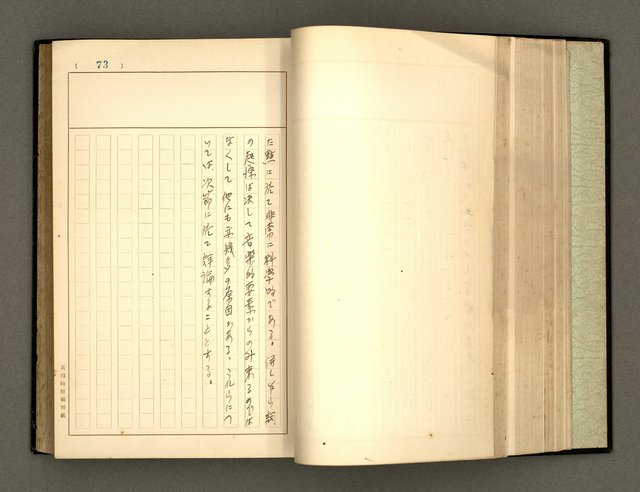 ( 73 )
た點に於て非常に科學的である。併しながら詞
の起源は決して音樂的要素からのみ來るのでは
なくして他にも亦幾多の原因がある。これらにつ
いては、次節に於て詳論することとする。
黃得時原稿用紙